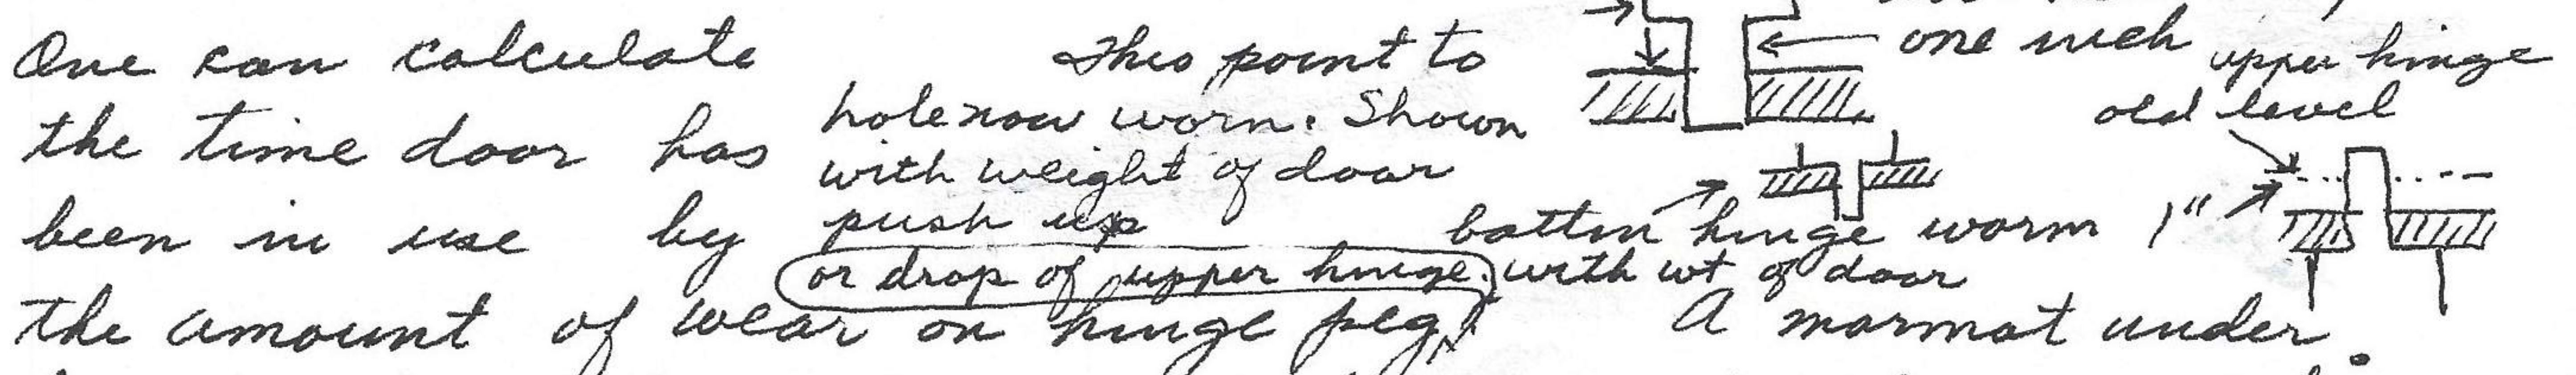 One can calculate
the time door has
been in use by
the amount of wear on hinge peg.
This point to
hole now worn. Shown
with weight of door
push up
or drop of upper hinge.
one inch
upper hinge
old level
1"
bottm hinge worm
with wt of door
A marmot under